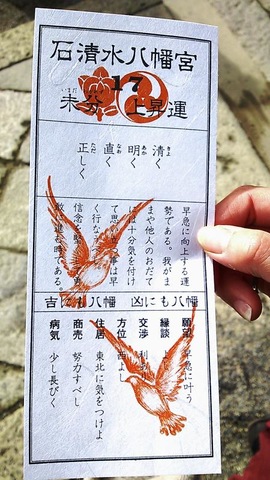 石清水八幡宮
17
未分 上昇運
いまだ
清く
明く
直く
正しく
早急に向上する運
勢である。我がま
まや他人のおだて
には十分気を付け
て思い立つ事は早
く行な
信念を
敢に進む時である。
吉にも八幡 凶にも八幡
願望 早急に叶う
縁談 よ
交渉 利
方位 西よし
住居 東北に気をつけよ
商売 努力すべし
病気 少し長びく